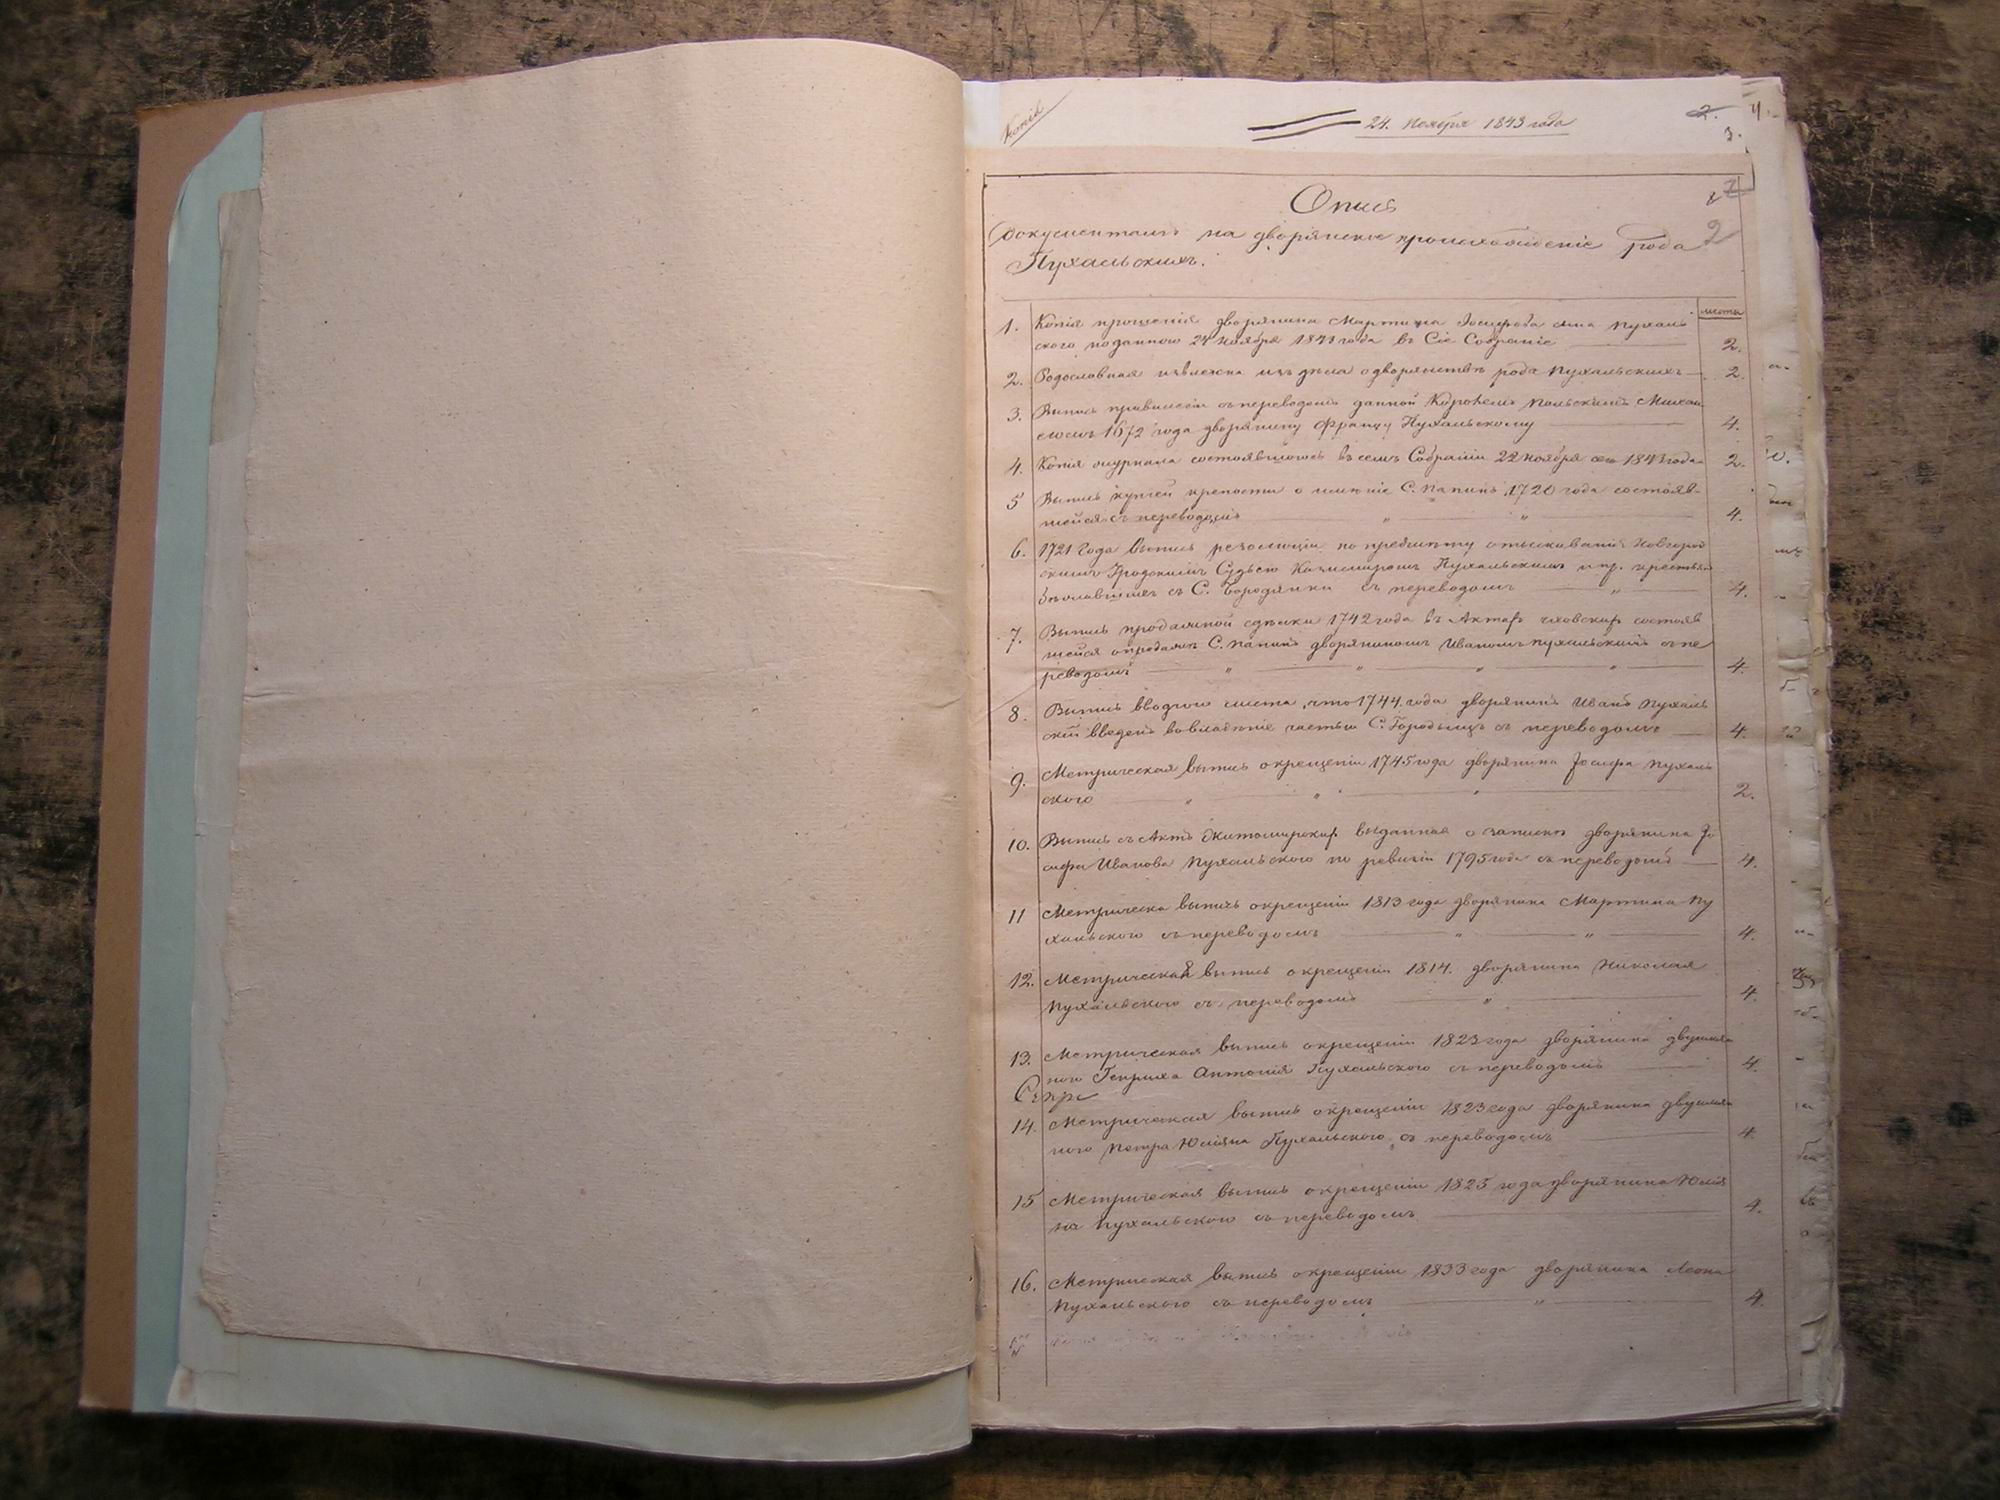 Копія
24. Ноября 1843 года
2.
4.
3.
Опись
2
документамъ на дворянское происхожденіе рода
Пухальскихъ.
листы
1. Копія прошенія дворянина Мартина Іосифова сына Пухаль
ского поданного 24 Ноября 1843 года въ Сіе Собраніе 2.
2. Родословная извлечена изъ дѣла о дворянствѣ рода Пухальскихъ 2.
3. Выпись привиллегіи съ переводомъ данной Королемъ Польскимъ Михаи
ломъ 1672 года дворянину Францу Пухальскому 4.
4. Копія журнала состоявшагося въ семъ Собраніи 22 Ноября 1843 года 2.
5 Выпись купчей крепости о имѣніе С. Папинъ 1720 года состояв-
шейся съ переводомъ " " 4.
6. 1721 года выпись резолюціи по предмѣту отыскиванія Новгород
скимъ Гродскимъ Судьею Казимиромъ Пухальскимъ и пр. крестьян
збѣжавшихъ съ С. Бородянки съ переводомъ " 4.
7. Выпись продажной сдѣлки 1742 года въ Актахъ состояв
шейся о продажѣ С. Папинъ дворяниномъ Иваномъ Пухальскимъ съ пе
реводомъ " " " " 4.
8. Выпись вводчого листа, что 1744 года дворянинъ Иванъ Пухаль
скій введенъ во владѣніе частью С. Городыщъ съ переводомъ 4.
9. Метрическая выпись о крещеніи 1745 года дворянина Іосифа Пухаль
ского " " " 2.
10. Выпись съ Актъ Житомирскихъ выданная о запискѣ дворянина Іо
сифа Иванова Пухальского по ревизіи 1795 года съ переводомъ 4.
11 Метрическа выпись о крещеніи 1813 года дворянина Мартина Пу
хальского съ переводомъ " " 4.
12. Метрическая выпись о крещеніи 1814. дворянина Николая
Пухальского съ переводомъ " 4.
13. Метрическая выпись о крещеніи 1823 года дворянина двуимян
ного Генриха Антонія Пухальского съ переводомъ 4.
14. Метрическая выпись о крещеніи 1823 года дворянина двуимян
ного Петра Юліяна Пухальского съ переводомъ 4.
15 Метрическая выпись о крещеніи 1825 года дворянина Юлія
на Пухальского съ переводомъ 4.
16. Метрическая выпись о крещеніи 1833 года дворянина Леона
Пухальского съ переводомъ " 4.